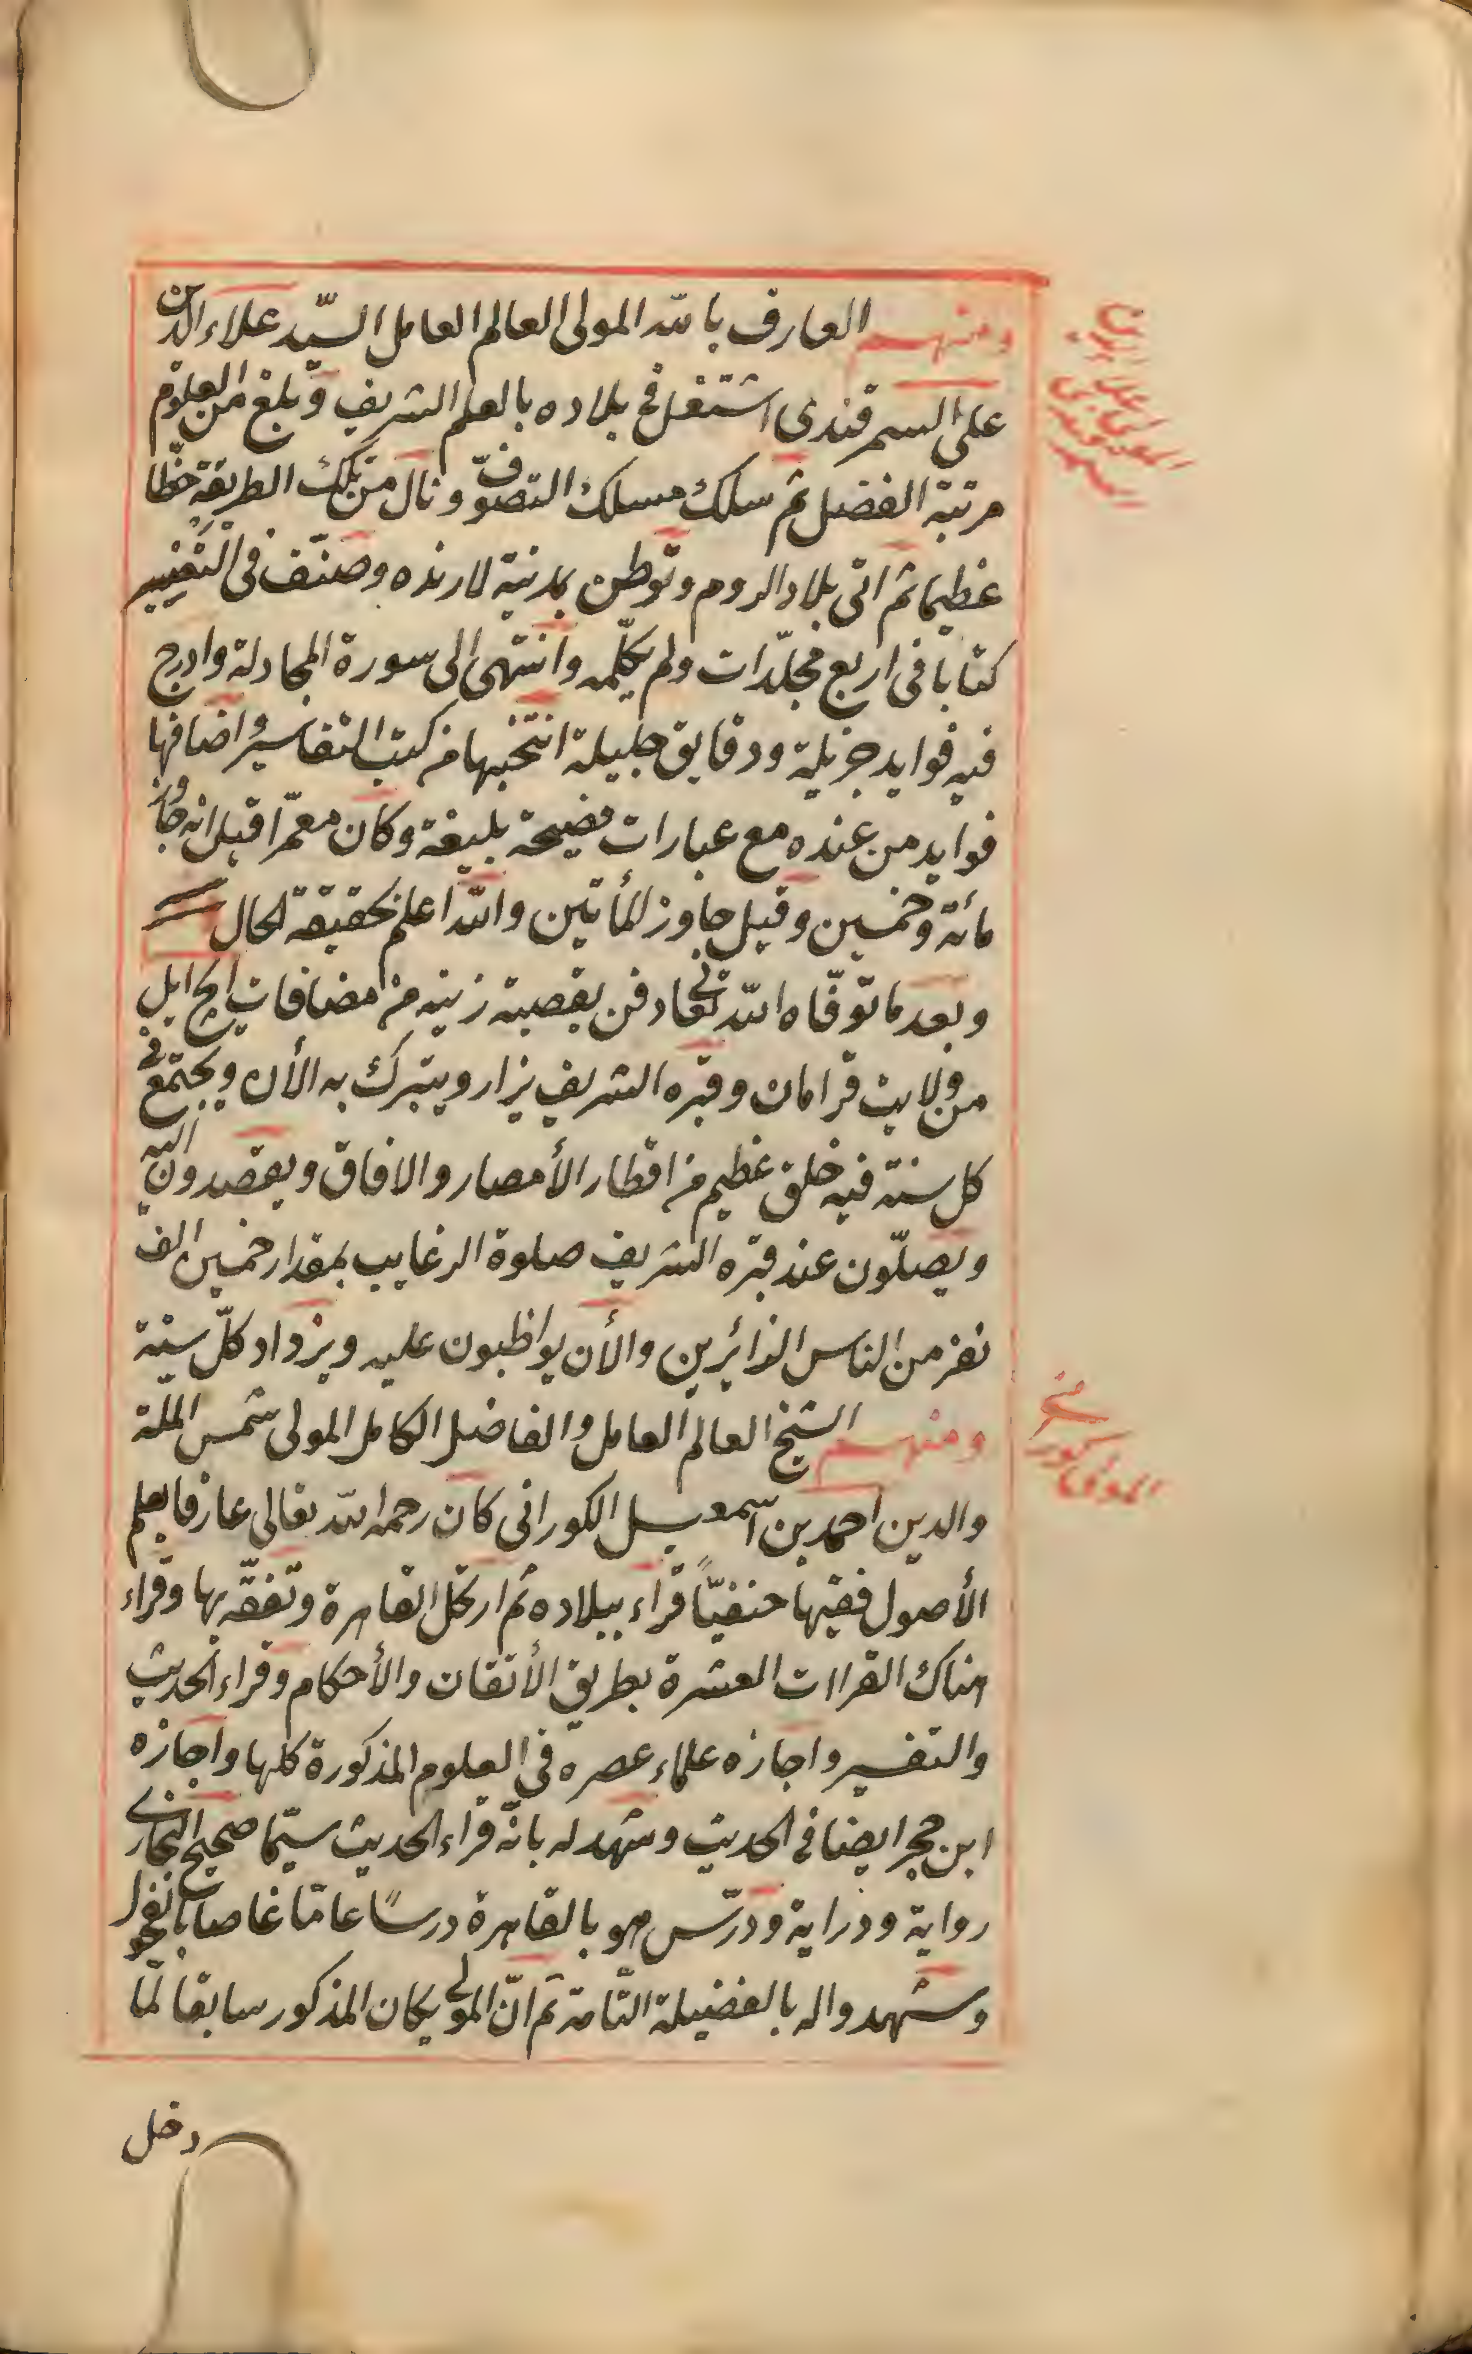 ومنهم العارف بالله المولى العالم العامل السيّد علاء الدين
على السمرقندى اشتغل فى بلاده بالعلم الشريف وبلغ من العلوم
مرتبة الفضل ثم سلك مسلك التصوّف ونال من تلك الطريقة حظّا
عظيما ثم اتى بلاد الروم وتوطن بمدينة لارنده وصنّف فى التفسير
كتابا فى اربع مجلّدات ولم يكلّمه وانتهى الى سورة المجادلة وادرج
فيه فوايد جزيلة ودقايق جليلة انتخبها من كتب التفاسير واضافها
فوايد من عنده مع عبارات فصيحة بليغة وكان معمّرا قيل انه جاوز
مائة وخمسين وقيل جاوز المأتين والله اعلم بحقيقة الحال
وبعد ما توفّاه الله تعالى دفن بقصبة زينه من مضافات ايج ايل
من ولايت قرامان وقبره الشريف يزار ويتبرك به الأن ويجتمع فى
كل سنة فيه خلق عظيم من اقطار الأمصار والافاق ويقصدون اليه
ويصلّون عند قبره الشريف صلوة الرغايب بمقدار خمسين الف
نفر من الناس الزائرين والأن يواظبون عليه ويزداد كلّ سنة
ومنهم الشيخ العالم العامل والفاضل الكامل المولى شمس الملة
والدين احمد بن اسمعيل الكورانى كان رحمه الله تعالى عارفا بعلم
الأصول فقيها حنفيّاً قراء ببلاده ثم ارتحل القاهرة وتفقّه بها وقراء
هناك القراات العشرة بطريق الأتقان والأحكام وقراء الحديث
والتفسير واجازه علماء عصره فى العلوم المذكورة كلها واجازه
ابن حجر ايضا فى الحديث وشهد له بانّه قراء الحديث سيّما صحيح البخارى
رواية ودراية ودرّس هو بالقاهرة درسًا عامّا غاصا بالفحول
وشهدوا له بالفضيلة التّامة ثم انّ المولى يكان المذكور سابقا لمّا
دخل